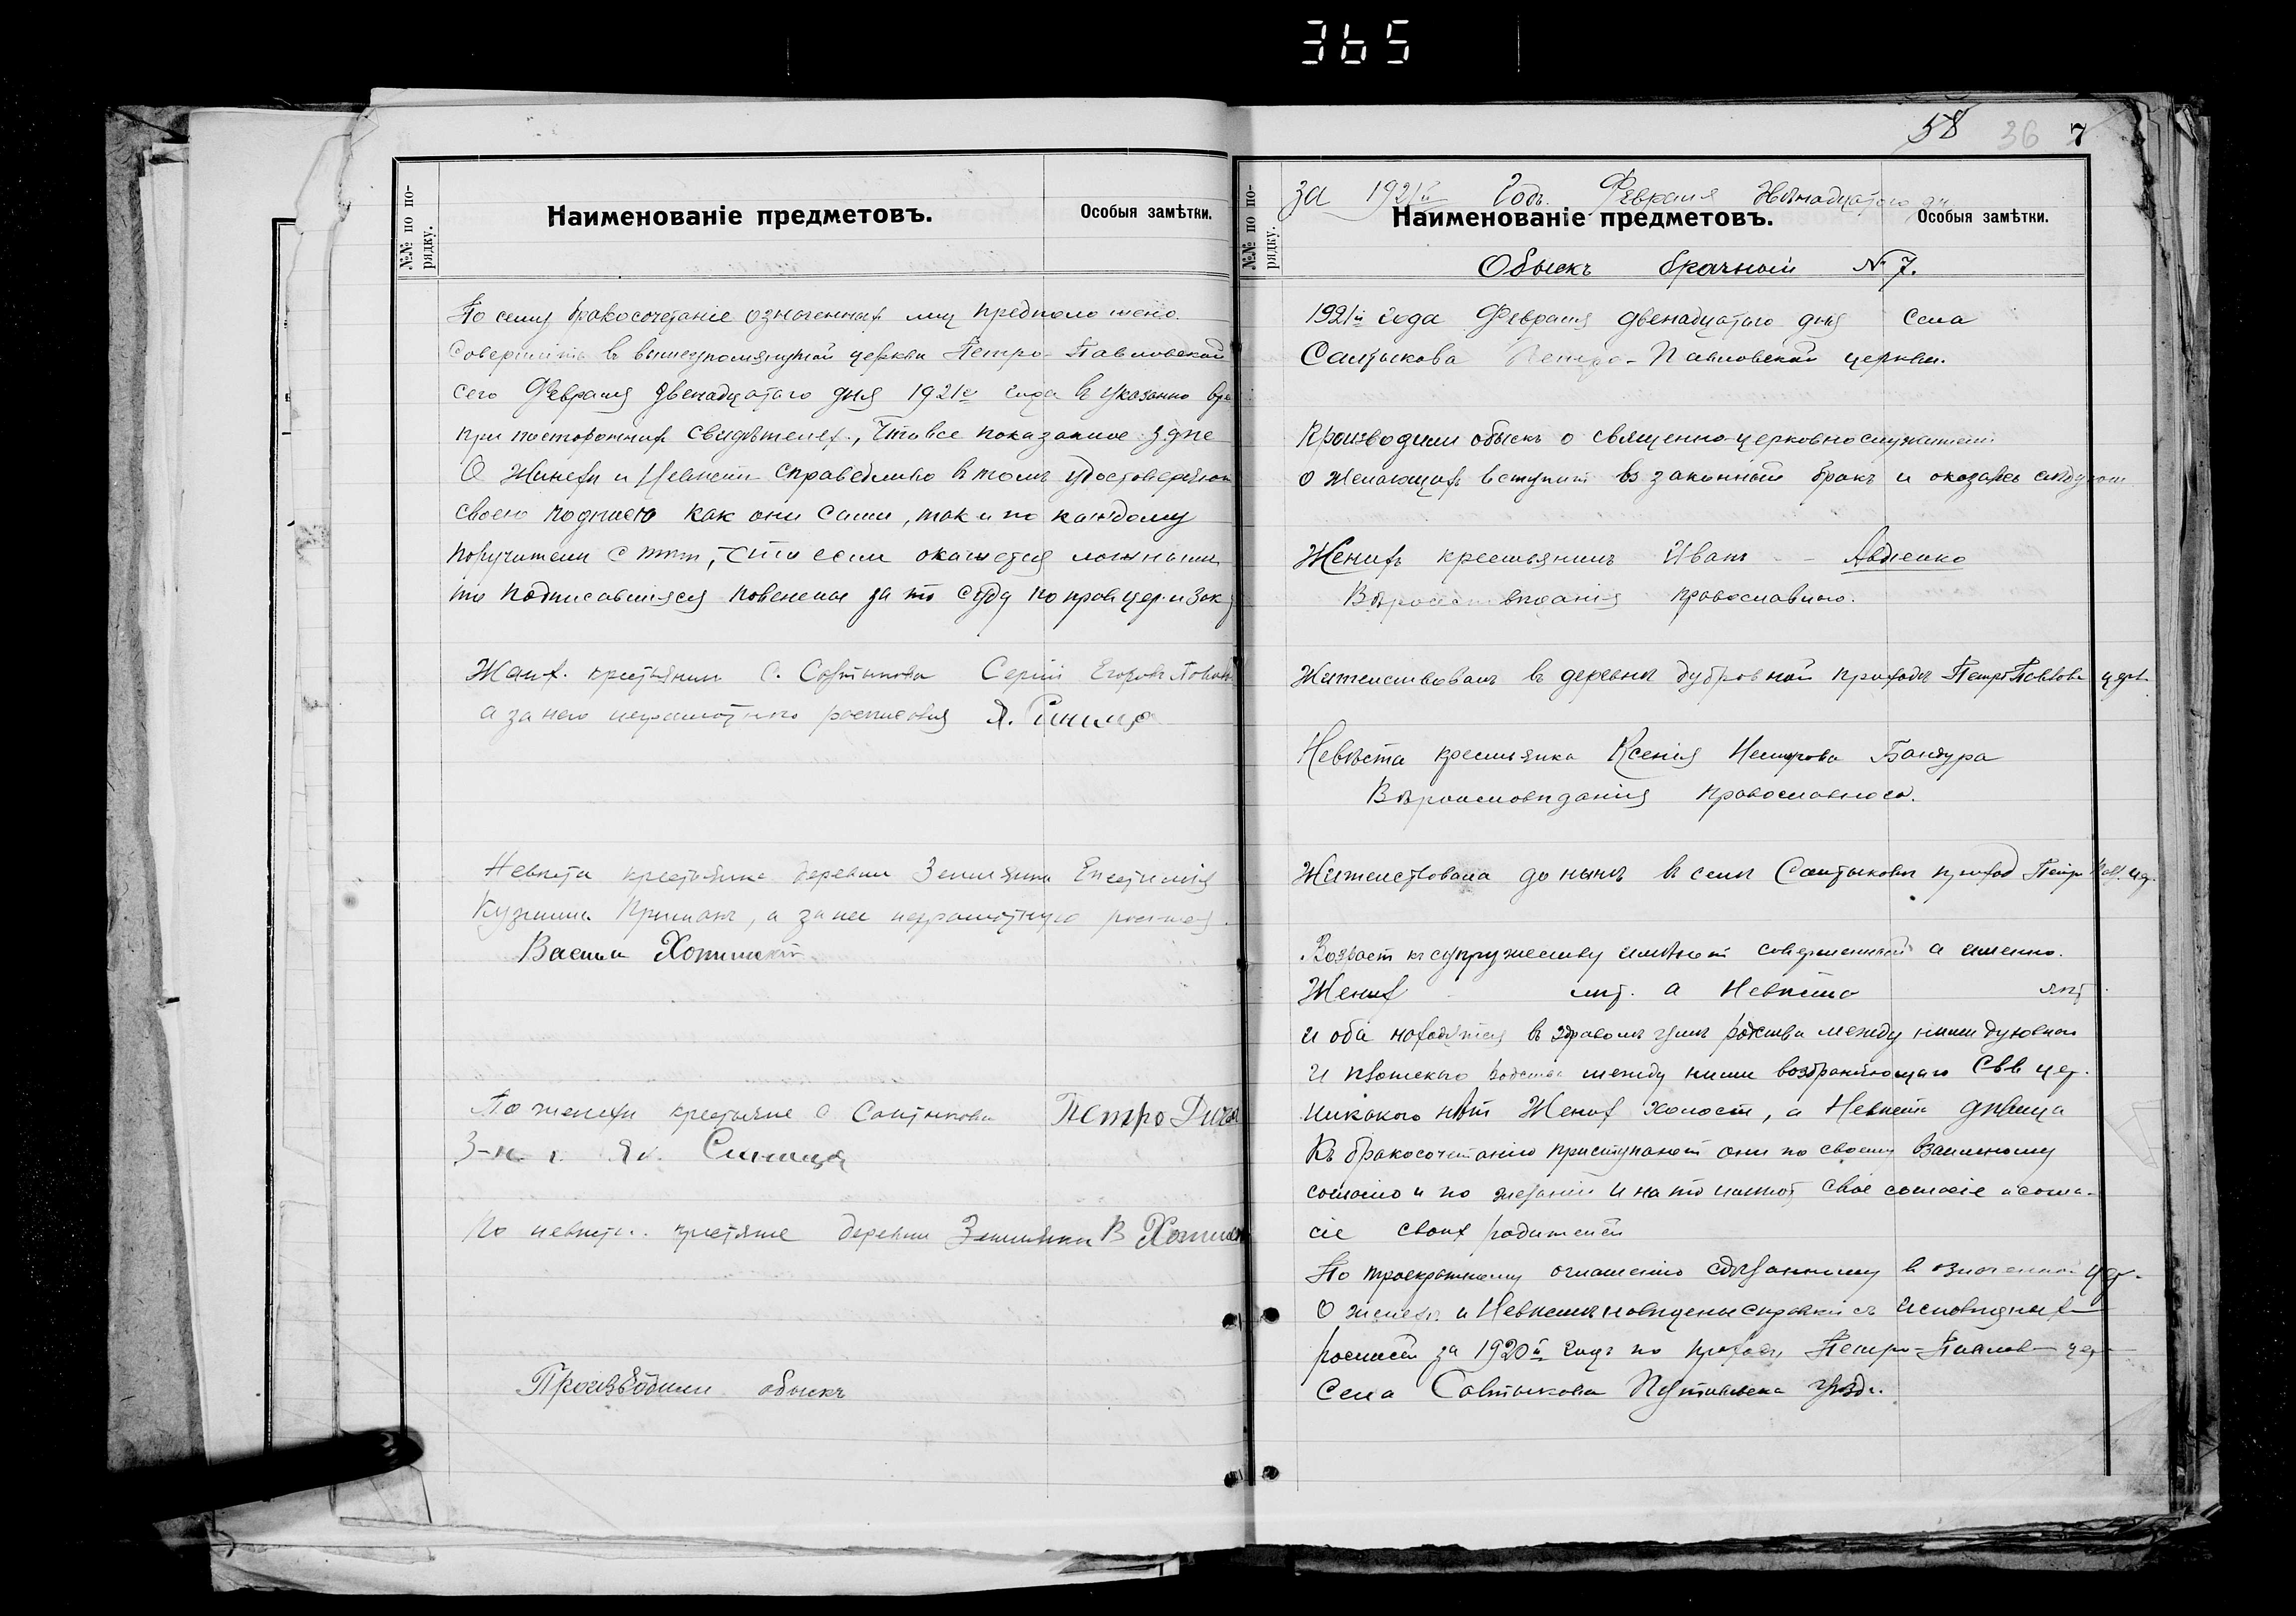 365
№№ по по-
рядку.
Наименованіе предметовъ.
Особыя замѣтки.
По сему бракосочетаніе означенных лиц предположено
Совершить в вышеупомянутой церкви Петро-Павловской
сего Февраля двенадцатаго дня 1921го года в указанно вре
при посторонних свидѣтелех, Что все показанное здпс
О Жинехи и Невпсти справедливо в томъ удостоверяют
своею подписю как они сами, так и по каждому
поручители с тпм, что если окажется ложным
то подписавшіяся повенены за то суду по прав цер. и Зак
Жених. крестьянин С. Сергій Егоров
а за него неграмотнаго росписовся Я. Синица
Невпста крестьянка деревни Землянки
Кузмина а за нее неграмотную
Васили
По женихи крестьяне с Салтыкова Петро
Як. Синица
По невпсти крестьяне деревни Землянки В
Произвōдили обыскъ
58 36 7
За 1921й Годъ. Февраля двѣнадцатого дн
№№ по по-
рядку.
Наименованіе предметовъ.
Особыя замѣтки.
Обыскъ брачный № 7.
1921й года Февраля двенадцатаго дня Села
Салтыкова Петро-Павловской церкви.
Производили обыскъ о священно-церковнослужители
о желающихъ вступит въ законный бракъ и оказалось слпдующ
Женихъ крестьянинъ Иванъ - - Авдіенко
Вѣроисповпданія православнаго.
Жительствовалъ в деревнп Дубровной приходп Петро Павлов церк.
Невѣста крестьянка Ксенія Бандура
Вѣроисповпданія православнаго.
Жительствовала до нынп в селп Салтыковп приход Петро Пав. цер.
Возраст къ супружеству имѣют совершенной а именно.
Жених лпт. а Невпста лпт.
и оба находятся в здравомъ умп родства между ними духовнаго
и плотскаго родства между ними возбраняющаго Свв цер.
никакого нпт Жених холост, а Невпста дпвица
Къ бракосочетанію приступают они по своему взаимному
согласію и по желанію и на то имеют свое согласіе и согла-
сіе своих родителей
По троекратному оглашенію сдпланному в означенной цер.
О женихп и Невпстп наведены справки съ исповпдных
росписей за 1920й годъ по приходу Петро-Павлов цер
Села Савтыкова Путивльска упзда.